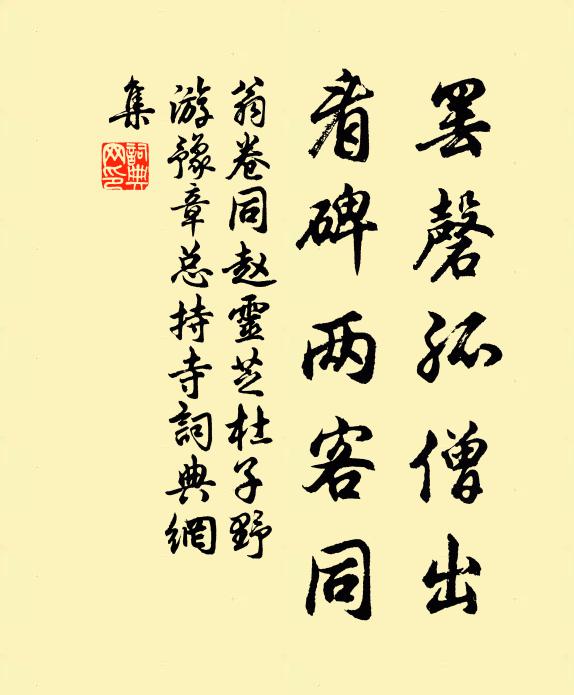 罢磬孤僧出
看碑两客同
翁卷同赵靈芝杜子野
游豫章总持寺詞典網
集
詞典
网印